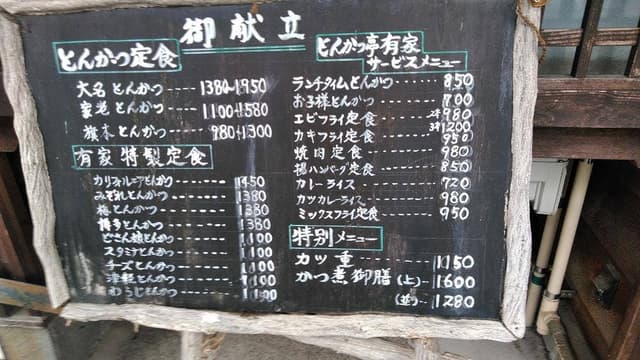 御献立
とんかつ定食
大名とんかつ-----1380~1950
家老とんかつ-----1100~1580
旗本とんかつ-----980~1300
有家特製定食
カリフォルニアとんかつ-----1450
みぞれとんかつ-----1380
梅とんかつ-----1380
博多とんかつ-----1380
どさん娘とんかつ-----1100
スタミナとんかつ-----1100
チーズとんかつ-----1100
津軽とんかつ-----1100
とんかつ-----1100
とんかつ亭有家
サービスメニュー
ランチタイムとんかつ-----850
お子様とんかつ-----700
エビフライ定食-----2本980
3本1200
カキフライ定食-----950
焼肉定食-----980
揚ハンバーグ定食-----850
カレーライス-----720
カツカレーライス-----980
ミックスフライ定食-----950
特別メニュー
カツ重-----1150
かつ煮御膳(上)-----1600
(並)-----1280